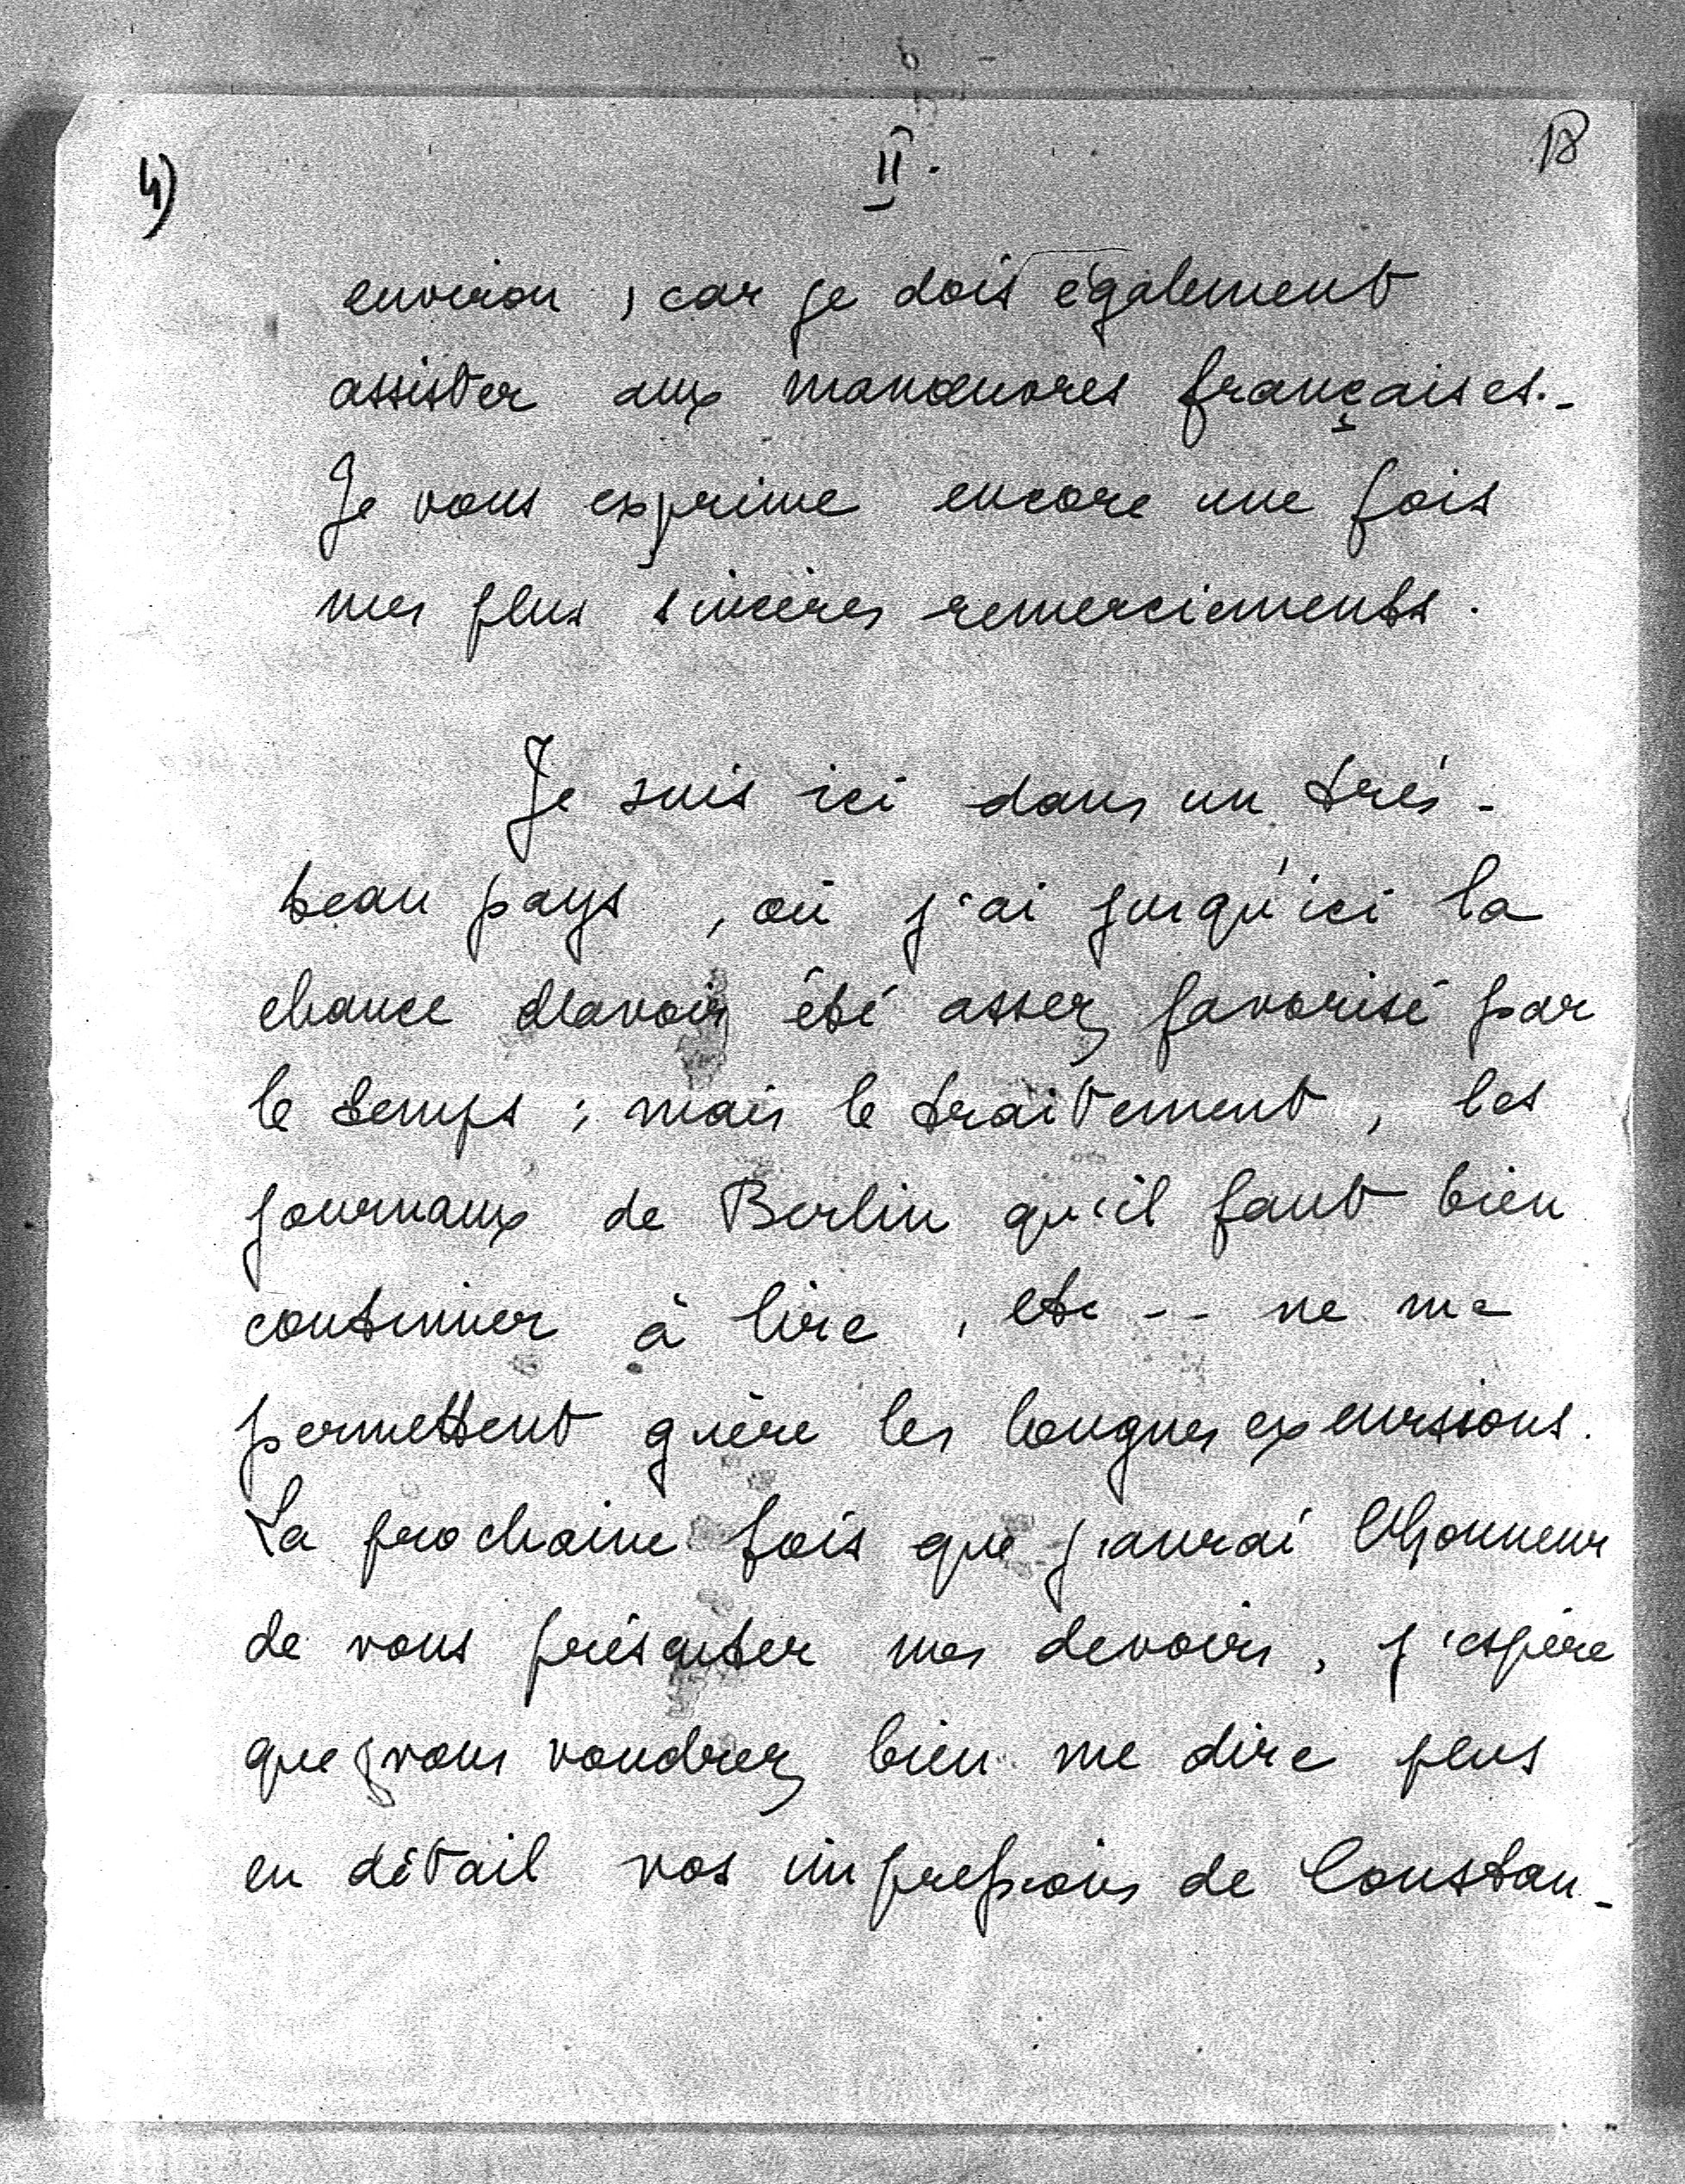 4)
II.
environ, car je dois également
assister aux manœuvres françaises.-
Je vous exprime encore une fois
mes plus sincères remerciements.
Je suis ici dans un très-
beau pays, où j'ai jusqu'ici la
chance d'avoir été assez favorisé par
le temps; mais le traitement, les
journaux de Berlin qu'il faut bien
continuer à lire, etc -- ne me
permettent guère les longues excursions.
La prochaine fois que j'aurai l'honneur
de vous présenter mes devoirs, j'espère
que vous voudrez bien me dire plus
en détail vos impressions de Constan-